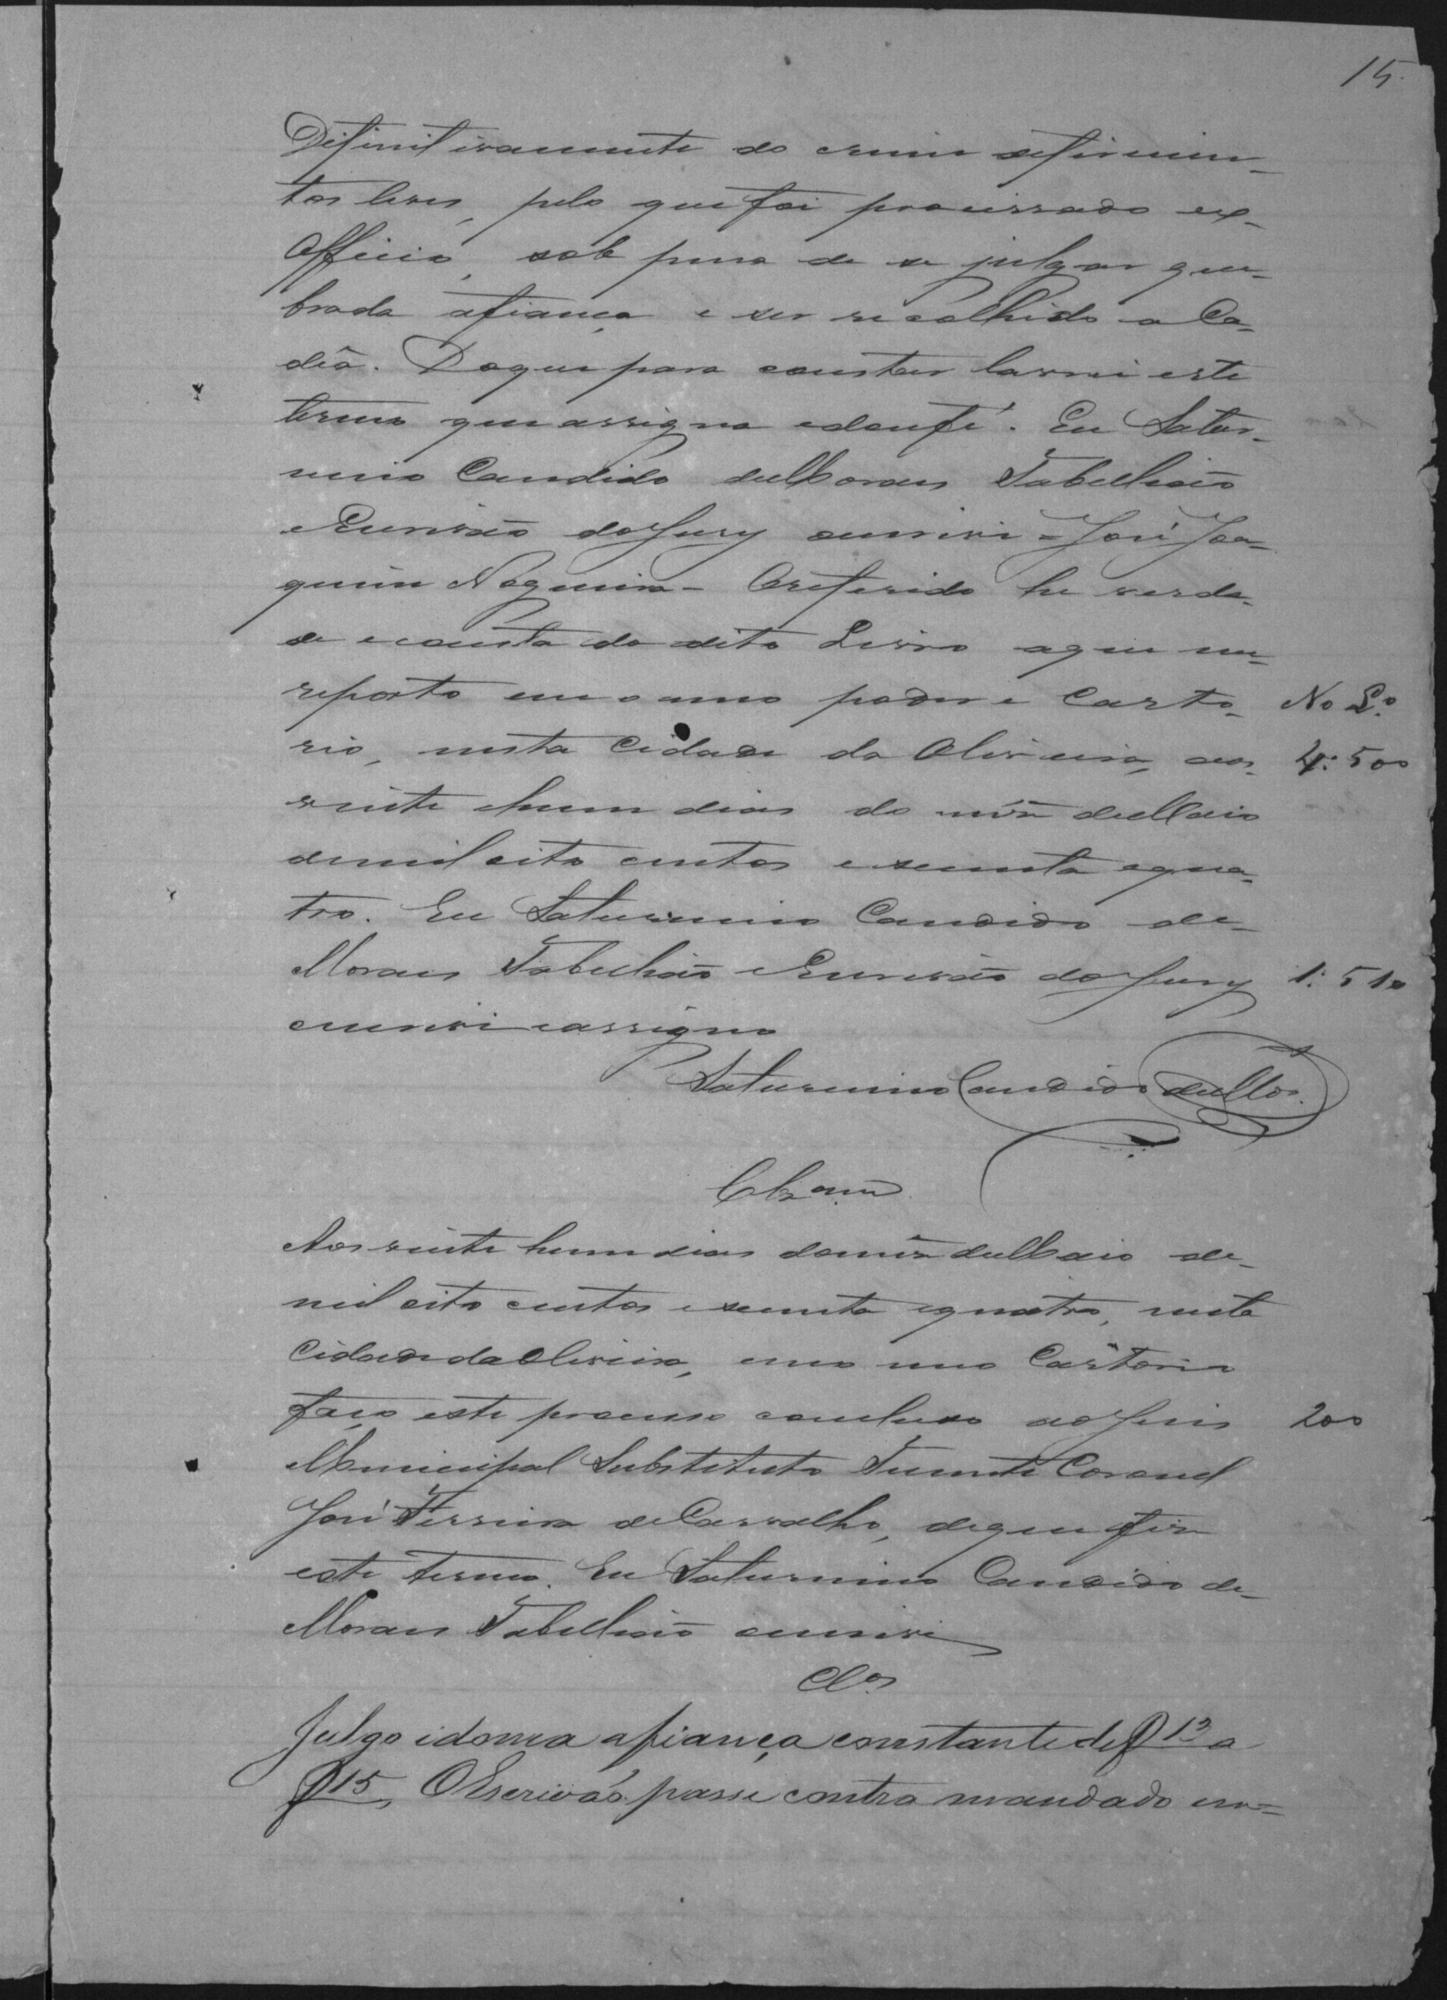 15.
Difinitivamente do crime de firimen-
tos leves, pelo que foi processado ex-
Officio, sob pena de se julgar que-
brada afiança e ser recolhido a Ca-
dêa. Do que para constar lavrei este
termo que assigna e dou fé. Eu Satur-
nino Candido de Moraes Tabelliaõ
e Escrivaõ do Jury escrivi = José Joa-
quim Nogueira - O referido he verda-
de e consta do dito Livro a que me
reporto em o meo poder e Carto- No L.º
rio, nesta Cidade da Oliveira, aos 4:500
vinte e hum dias do mêz de Maio
de mil oito centos e secenta e qua-
tro. Eu Saturnino Candido de
Moraes Tabelliaõ e Escrivaõ do Jury 1:510
escrivi e assigno
Saturnino Candido de Mos.
Clzam
Aos vinte hum dias do mêz de Maio de
mil oito centos e secenta e quatro, nesta
Cidade da Oliveira, em o meo Cartorio
faço este processo concluso ao Juis 200
Municipal Substituto Tenente Coronel
José Ferreira de Carvalho, de que fiz
este termo. Eu Saturnino Candido de
Moraes Tabelliaõ escrivi
Clos
Julgo idonea a fiança constante de f 13 a
f 15, O Escrivaõ passe contra mandado em=